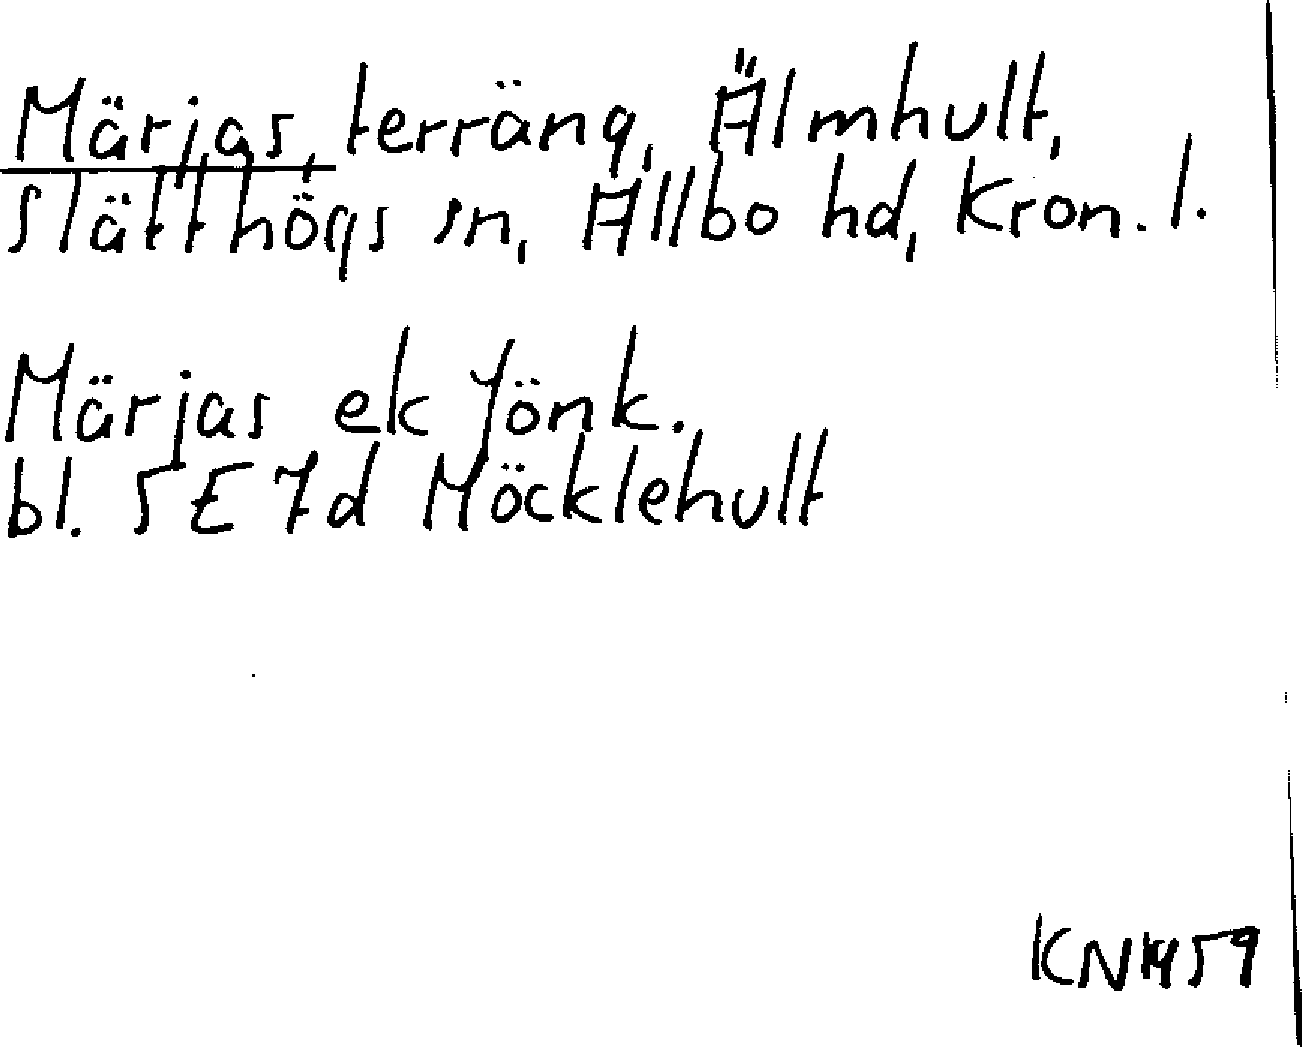 Märjas, terräng, Älmhult,
Slätthögs sn, Allbo hd, Kron. l.
Märjas ek Jönk.
bl. 5E 7d Möcklehult